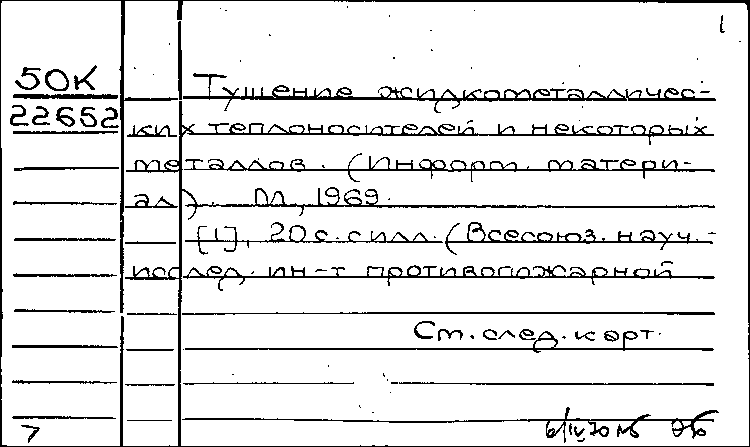 1
50К Тушение жидкометалличес-
22652 ких теплоносителей и некоторых
металлов. (Информ. матери-
ал). М., 1969.
[1], 20 с. с илл. (Всесоюз. науч.-
исслед. ин-т противопожарной
См. след. карт.
7